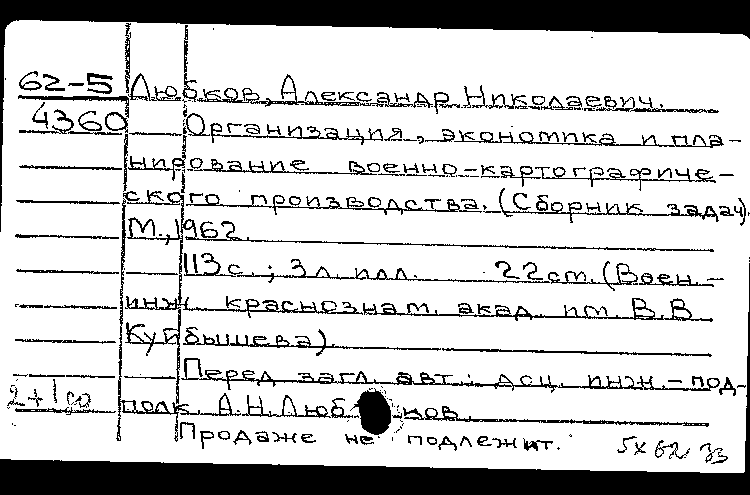 62-5 Любков, Александр Николаевич.
4360 Организация, экономика и пла-
нирование военно-картографиче-
ского производства. (Сборник задач).
М., 1962.
113 с.; 3 л. илл. 22 см. (Воен.-
инж. краснознам. акад. им. В.В.
Куйбышева).
Перед загл. авт.: доц. инж.-под-
2+1 полк. А.Н. Любков.
Продаже не подлежит. 5х62